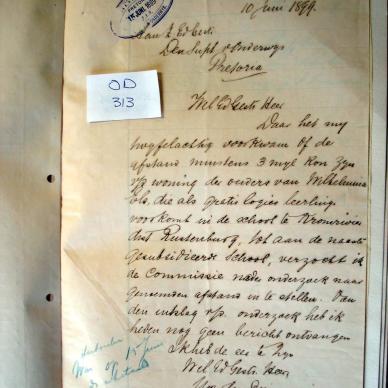 10 Juni 1899.
PRETORIA
Aan Z Ed Gestr
Den Supt v Onderwijs
Pretoria
OD
313
Wel Ed Gestr Heer
Daar het mij
twyfelachtig voorkwam of de
afstand minstens 3 myl kon zyn
v/d woning der ouders van Wilhelmina
die als gratis logies leerling
voorkomt in de school te Kromrivier
dist Rustenburg, tot aan de naaste
Gesubsidieerde School, verzocht ik
de Commissie nader onderzoek naar
genoemden afstand in te stellen. Van
den uitslag v/d onderzoek heb ik
heden nog geen bericht ontvangen
Ik heb de eer te zyn
Wel Ed Gestr Heer
15 Juni